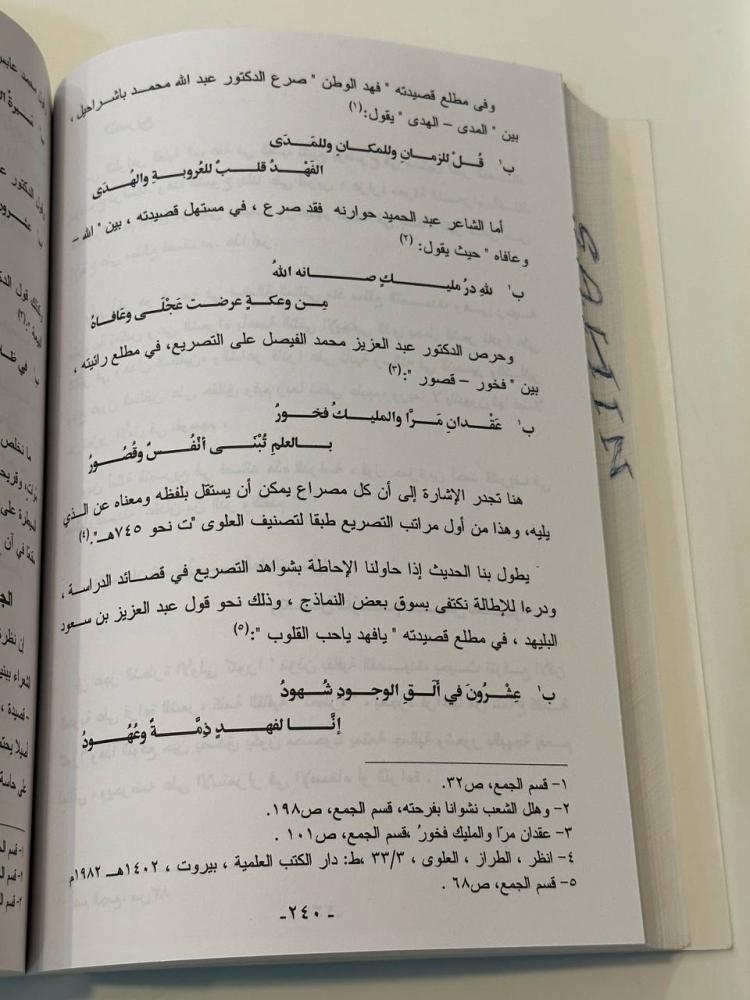 وفى مطلع قصيدته " فهد الوطن " صرع الدكتور عبد الله محمد باشراحيل ،
بين " المدى – الهدى " يقول:(١)
ب١ قُلْ للزمانِ وللمكانِ وللمَدَى
الفَهْدُ قلبٌ للعُروبةِ والهُدَى
أما الشاعر عبد الحميد حوارنه فقد صرع ، في مستهل قصيدته ، بين " الله –
وعافاه " حيث يقول: (٢)
ب١ للهِ درُ مليكٍ صانه اللهُ
مِن وعكةٍ عرضت عَجْلَى وعَافاهُ
وحرص الدكتور عبد العزيز محمد الفيصل على التصريع، في مطلع رائيته ،
بين " فخور – قصور ":(٣)
ب١ عَقْدانِ مَرَّا والمليكُ فخورُ
بالعلمِ تُبْنَى أنْفُسٌ وقُصُورُ
هنا تجدر الإشارة إلى أن كل مصراع يمكن أن يستقل بلفظه ومعناه عن الذي
يليه، وهذا من أول مراتب التصريع طبقا لتصنيف العلوى "ت نحو ٧٤٥هـ".(٤)
يطول بنا الحديث إذا حاولنا الإحاطة بشواهد التصريع في قصائد الدراسة ،
ودرءا للإطالة نكتفى بسوق بعض النماذج ، وذلك نحو قول عبد العزيز بن سعود
البليهد ، في مطلع قصيدته " يافهد ياحب القلوب ":(٥)
ب١ عِشْرُونَ في ألَقِ الوجودِ شُهودُ
إنَّا لفهدٍ ذِمَّةٌ وعُهُودُ
١- قسم الجمع، ص٣٢.
٢- وهلل الشعب نشوانا بفرحته، قسم الجمع، ص١٩٨.
٣- عقدان مرّا والمليك فخورُ ،قسم الجمع، ص١٠١ .
٤- انظر ، الطراز ، العلوى ، ٣٣/٣ ،ط: دار الكتب العلمية ، بيروت ، ١٤٠٢هـ ١٩٨٢م
٥- قسم الجمع، ص٦٨ .
-٢٤٠-
SAHIN